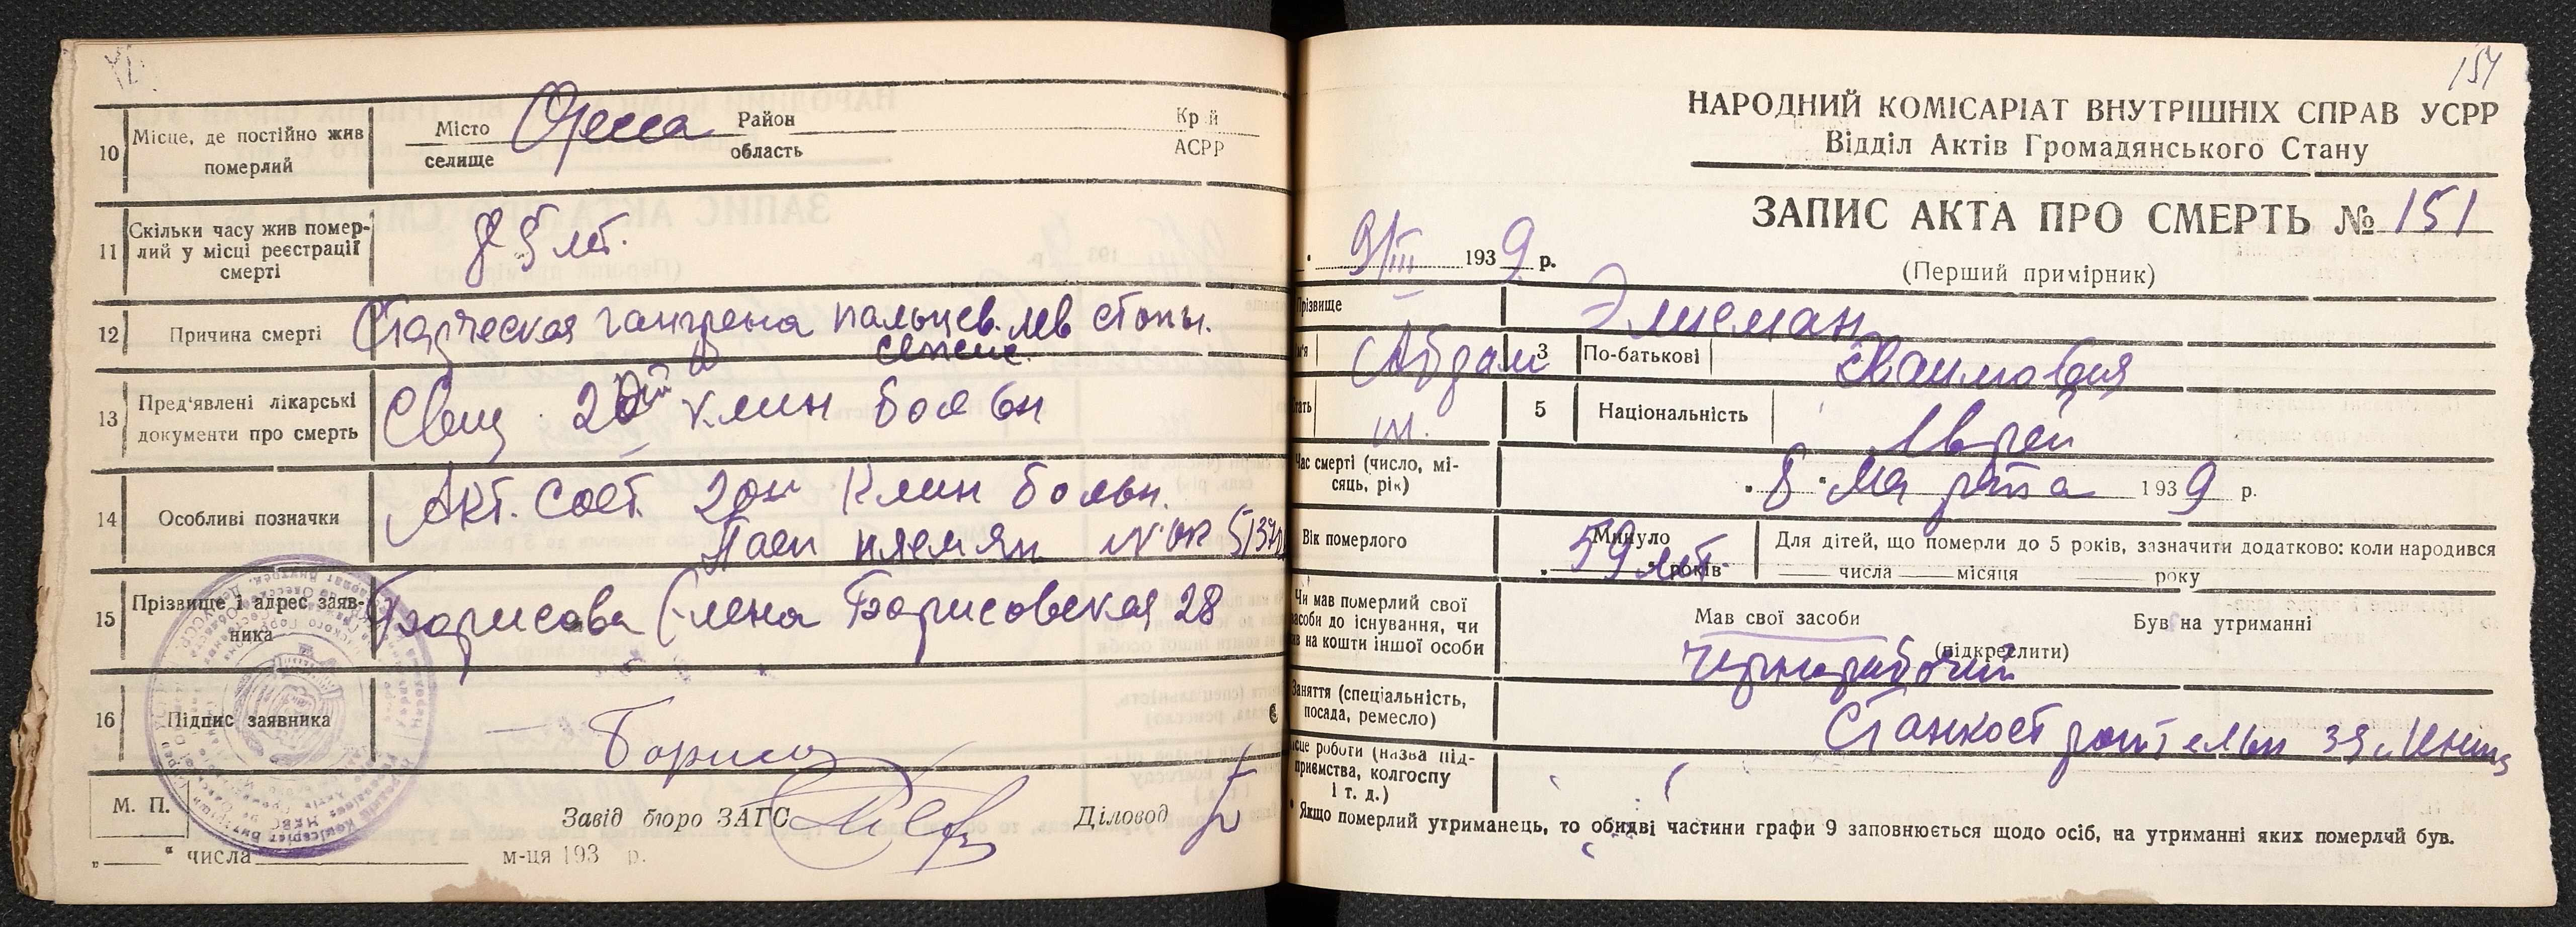 10 Місце, де постійно жив померлий
Місто селище Одесса Район область Край АСРР
11 Скільки часу жив померлий у місці реєстрації смерті
5 лет.
12 Причина смерті
Старческая гангрена пальцев лев стопы.
сепсис.
13 Пред'явлені лікарські документи про смерть
Свид. 20й клин больн
14 Особливі позначки
Акт. сост. 20й Клин больн.
Пасп
15 Прізвище і адрес заявника
Борисова Елена Борисовская 28
16 Підпис заявника
Борисо
М. П.
Завід бюро ЗАГС
Діловод
„ “ числа м-ця 193 р.
154
НАРОДНИЙ КОМІСАРІАТ ВНУТРІШНІХ СПРАВ УСРР
Відділ Актів Громадянського Стану
ЗАПИС АКТА ПРО СМЕРТЬ № 151
9/III 1939 р.
(Перший примірник)
Прізвище
м'я 3 По-батькові Хаимович
5 Національність
м. Еврей
Час смерті (число, місяць, рік)
„ 8 “ Марта 1939 р.
Вік померлого
Минуло 59 лет років
Для дітей, що померли до 5 років, зазначити додатково: коли народився
числа місяця року
Чи мав померлий свої засоби до існування, чи був на кошти іншої особи
Мав свої засоби Був на утриманні
(підкреслити)
чернорабочий
Заняття (спеціальність, посада, ремесло)
Станкостроительн зд Ленина
Місце роботи (назва підприємства, колгоспу і т. д.)
* Якщо померлий утриманець, то обидві частини графи 9 заповнюється щодо осіб, на утриманні яких померлий був.